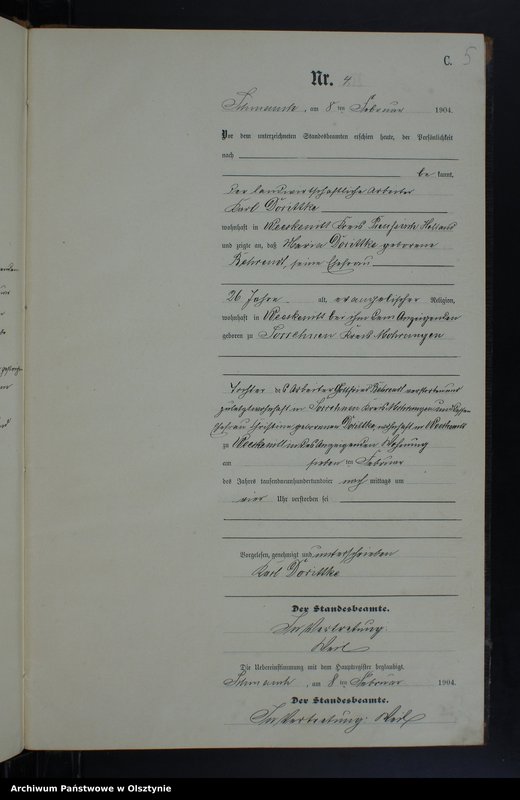 C. 5
Nr. 4
am 8 ten Februar 1904.
Vor dem unterzeichneten Standesbeamten erschien heute, der Persönlichkeit
nach
be kannt,
der landwirtschaftliche Arbeiter
Karl Dorittke
wohnhaft in Kreis
und zeigte an, daß Maria Dorittke geborene
Behrendt, seine Ehefrau
26 Jahre alt, evangelischer Religion,
wohnhaft in bei ihm dem Anzeigenden
geboren zu Sorrehnen Kreis Mohrungen
Tochter des Arbeiter Gottfried Behrendt verstorben und
zuletzt wohnhaft in Sorrehnen Kreis Mohrungen und dessen
Ehefrau Christine geborenen Dorittke, wohnhaft in
zu in des Anzeigenden Wohnung
am sieben ten Februar
des Jahres tausendneunhundertundvier nach mittags um
vier Uhr verstorben sei
Vorgelesen, genehmigt und unterschrieben
Karl Dorittke
Der Standesbeamte.
In Vertretung:
Weil
Die Uebereinstimmung mit dem Hauptregister beglaubigt.
am 8 ten Februar 1904.
Der Standesbeamte.
In Vertretung: Weil
Archiwum Państwowe w Olsztynie